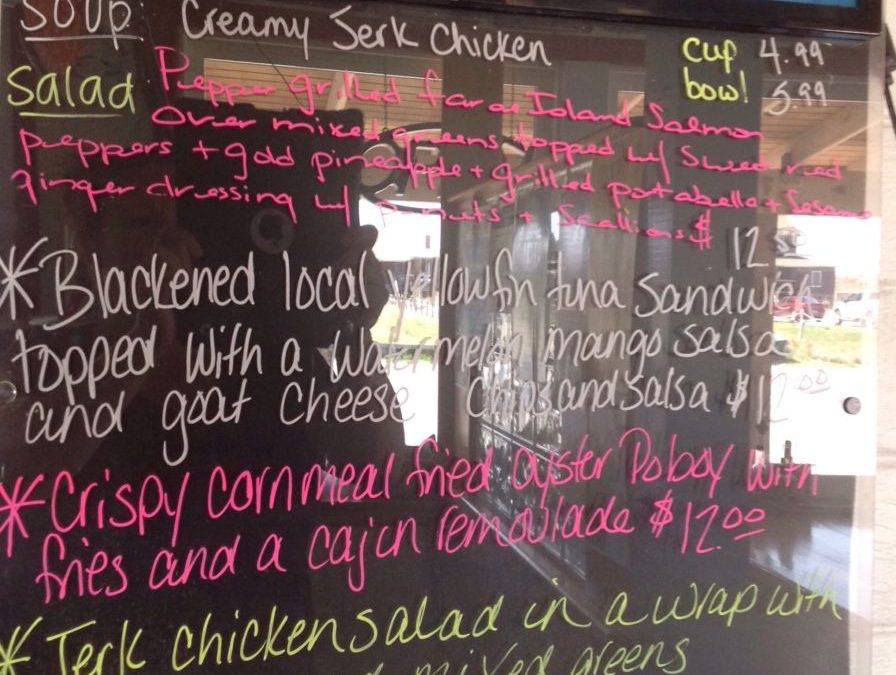 SOUP: Creamy Jerk Chicken cup 4.99
bowl 5.99
Salad Pepper grilled faroe Island Salmon
Over mixed greens topped w/ Sweet red
peppers + gold pineapple + grilled portabella + Sesame
ginger dressing w/ peanuts + Scallions $
12
*Blackened local yellowfin tuna Sandwich
topped with a watermelon mango salsa
and goat cheese Chips and salsa $12.00
*Crispy cornmeal fried oyster Poboy with
fries and a cajun remoulade $12.00
*Jerk chicken salad in a wrap with
mixed greens